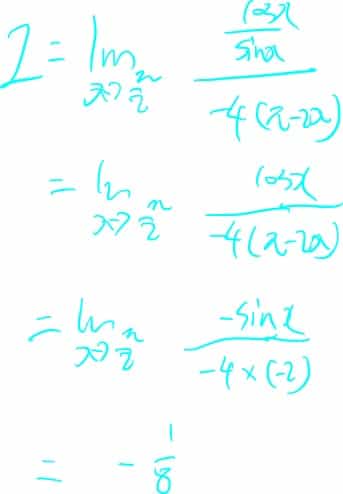 I = lim x→π/2 (cosx/sinx)/(-4(π-2x))
= lim x→π/2 cosx/(-4(π-2x))
= lim x→π/2 -sinx/(-4×(-2))
= -1/8